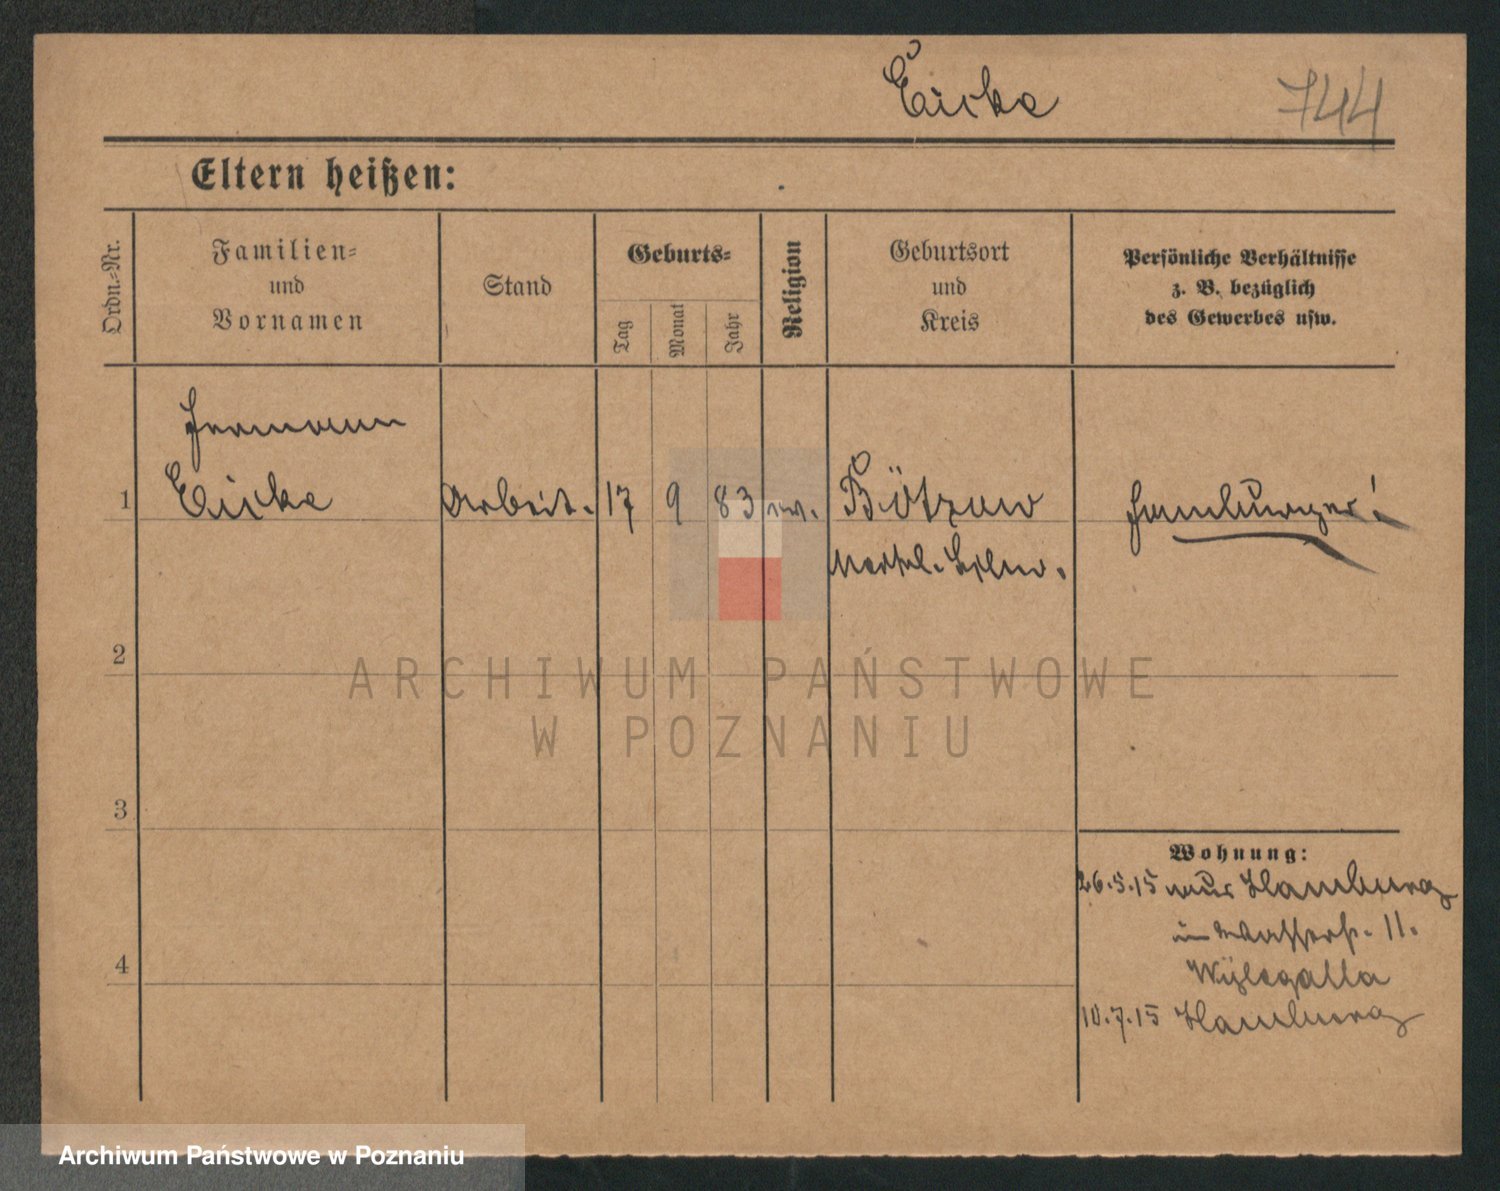 Eicke 744
Eltern heißen:
Ordn.=Nr.
Familien=
und
Vornamen
Stand
Geburts=
Tag
Monat
Jahr
Religion
Geburtsort
und
Kreis
Persönliche Verhältnisse
z. B. bezüglich
des Gewerbes usw.
Hermann
1 Eicke Arbeit. 17 9 83 ev. Bötzow
Hamburger!
2
3
4
Wohnung:
26.5.15 aus Hamburg
in Wasserstr. 11.
Wylegalla
10.7.15 Hamburg
ARCHIWUM PAŃSTWOWE
W POZNANIU
Archiwum Państwowe w Poznaniu